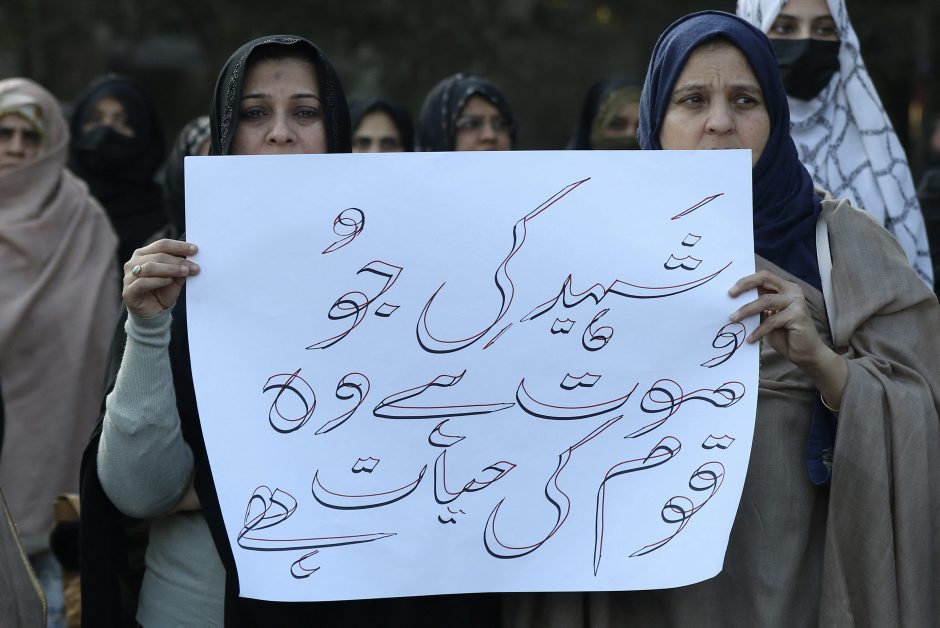 شہید کی جُو
مُوت ہے وہ
قوم کی حیات ہے